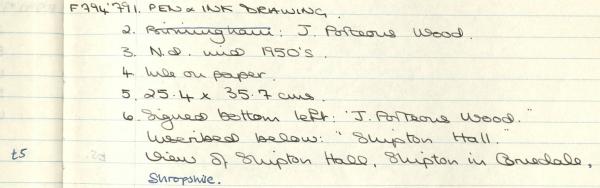 F794'791. PEN & INK DRAWING.
2. Birmingham: J. Porteous Wood.
3. N.d. mid 1950's.
4. Ink on paper.
5. 25.4 x 35.7 cms.
6. Signed bottom left: "J. Porteous Wood."
Inscribed below: "Shipton Hall."
View of Shipton Hall, Shipton in Corvedale,
t5
Shropshire.